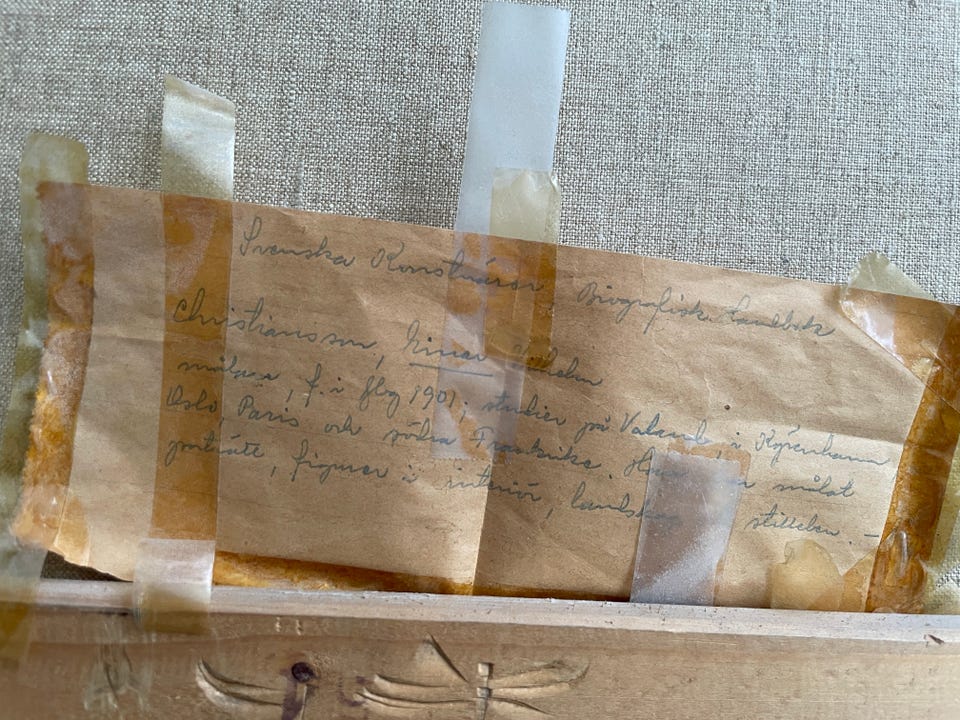 Svenska Konstnärer, Biografisk Handbok
Christiansson, Einar Vilhelm
målare, f. i Gbg 1901; studier på Valand, i Köpenhamn
Oslo, Paris och södra Frankrike. Han har målat
porträtt, figurer i interiör, landskap stilleben. –